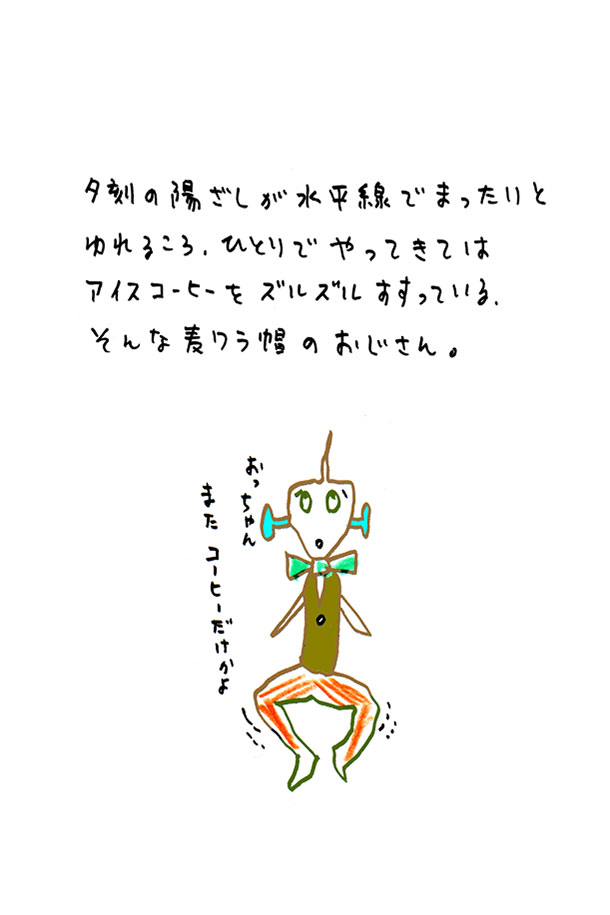 夕刻の陽ざしが水平線でまったりと
ゆれるころ、ひとりでやってきては
アイスコーヒーをズルズルすすっている、
そんな麦ワラ帽のおじさん。
おっちゃん
またコーヒーだけかよ